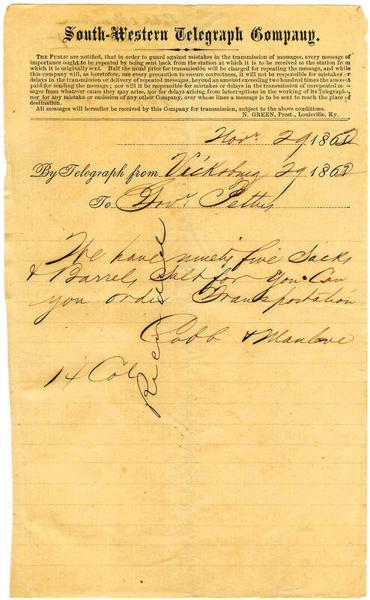 South-Western Telegraph Company.
The Public are notified, that in order to guard against mistakes in the transmission of messages, every message of
importance ought to be repeated by being sent back from the station at which it is to be received to the station from
which it is originally sent. Half the usual price for transmission will be charged for repeating the message, and while
this company will, as heretofore, use every precaution to ensure correctness, it will not be responsible for mistakes or
delays in the transmission or delivery of repeated messages, beyond an amount exceeding two hundred times the amount
paid for sending the message; nor will it be responsible for mistakes or delays in the transmission of unrepeated mes-
sages from whatever cause they may arise, nor for delays arising from interruptions in the working of its Telegraph,
nor for any mistake or omission of any other Company, over whose lines a message is to be sent to reach the place of
destination.
All messages will hereafter be received by this Company for transmission, subject to the above conditions.
N. GREEN, Prest., Louisville, Ky.
Novr 29 186
By Telegraph from Vicksburg 29 186
To Govr Pettus
We have ninety five Sacks
& Barrels Salt for You Can
you order Transportation
Cobb & Manlove
14 Col